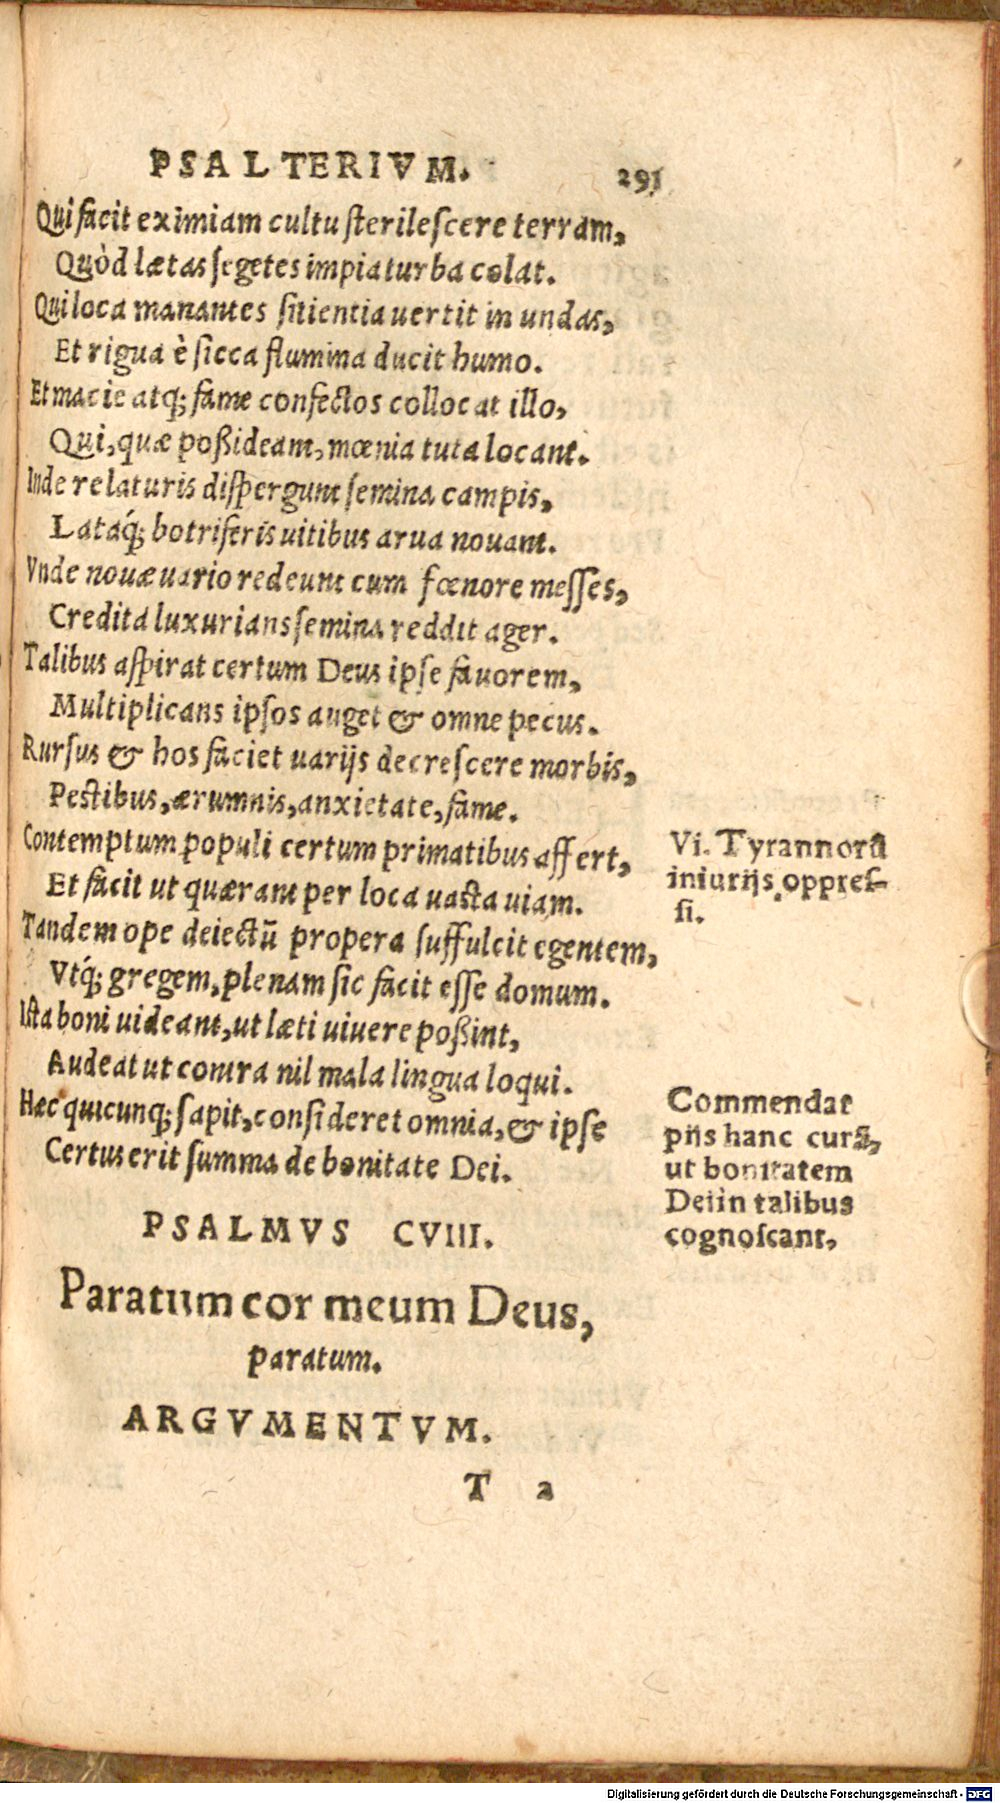 PSALTERIVM. 291
Qui facit eximiam cultu ſterileſcere terram,
Quòd lætas ſegetes impia turba colat.
Qui loca manantes ſitientia uertit in undas,
Et rigua è ſicca flumina ducit humo.
Et macie atq; fame confectos collocat illo,
Qui, quæ poßideant, mœnia tuta locant.
Inde relaturis diſpergunt ſemina campis,
Lataq́; botriferis uitibus arua nouant.
Vnde nouæ uario redeunt cum fœnore meſſes,
Credita luxurians ſemina reddit ager.
Talibus aſpirat certum Deus ipſe fauorem,
Multiplicans ipſos auget & omne pecus.
Rurſus & hos faciet uarijs decreſcere morbis,
Peſtibus, ærumnis, anxietate, fame.
Contemptum populi certum primatibus affert,
Et facit ut quærant per loca uaſta uiam.
Tandem ope deiectũ propera ſuffulcit egentem,
Vtq́; gregem, plenam ſic facit eſſe domum.
Iſta boni uideant, ut læti uiuere poßint,
Audeat ut contra nil mala lingua loqui.
Hæc quicunq; ſapit, conſideret omnia, & ipſe
Certus erit ſumma de bonitate Dei.
Vi. Tyrannorũ
iniurijs oppreſ-
ſi.
Commendat
pijs hanc curã,
ut bonitatem
Dei in talibus
cognoſcant,
PSALMVS CVIII.
Paratum cor meum Deus,
paratum.
ARGVMENTVM.
T 2
Digitalisierung gefördert durch die Deutsche Forschungsgemeinschaft - DFG